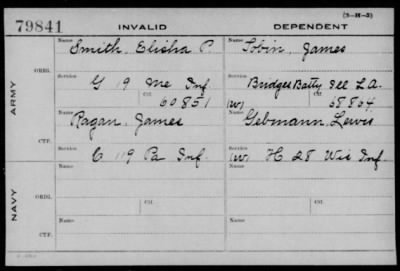 (3-H-5)
79841 INVALID DEPENDENT
ARMY
ORIG.
Name Smith, Elisha P.
Service G 19 Me Inf.
60851
Name Tobin, James
Service Bridges Batty Ill L.A.
Ctf.
(W) 68864
CTF.
Name Ragan, James
Service C 119 Pa Inf.
Name Gebmann, Lewis
Service (W) H 28 Wis Inf.
NAVY
ORIG.
Name
Ctf.
Name
Ctf.
CTF.
Name
Name